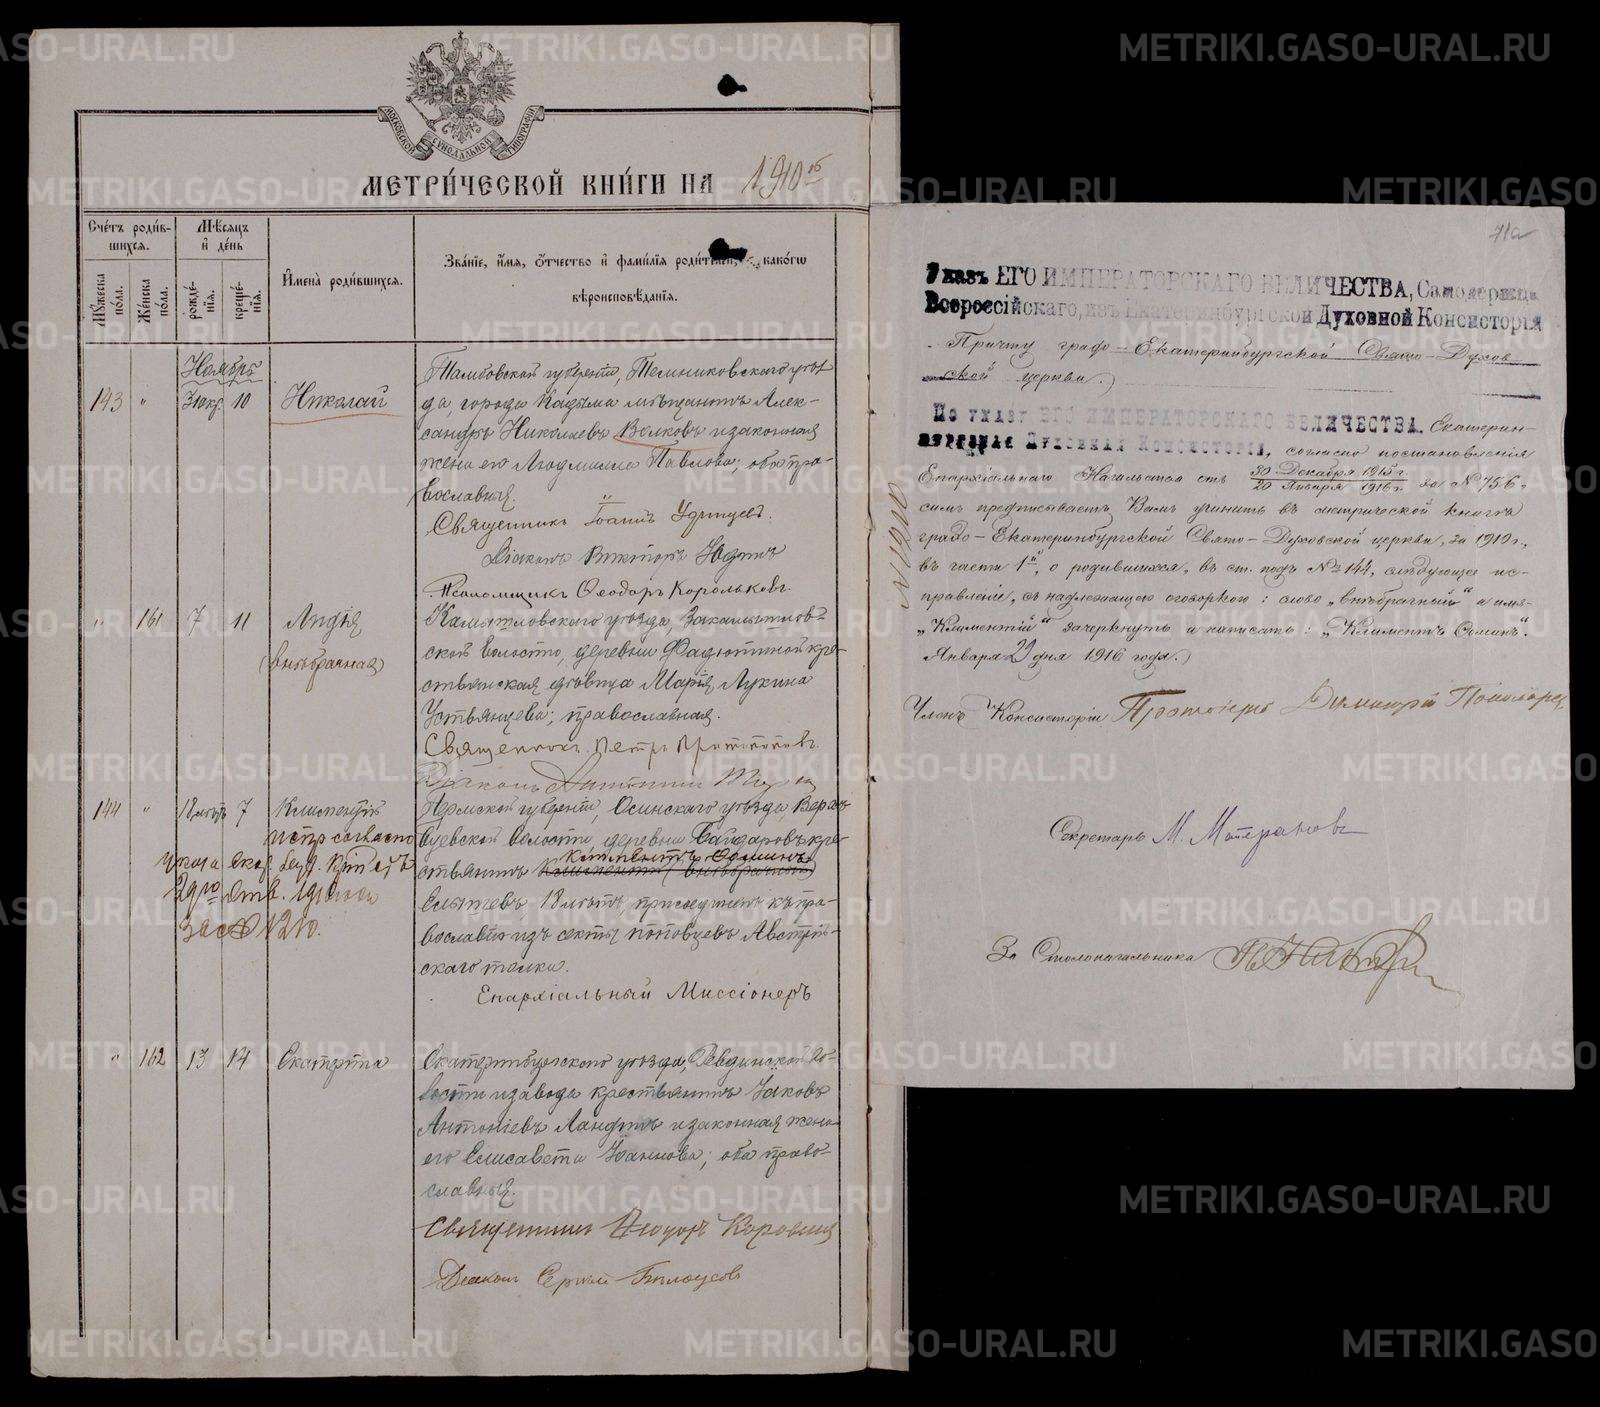 МОСКОВСКОЙ СѴНОДАЛЬНОЙ ТИПОГРАФІИ
МЕТРИ́ЧЕСКОЙ КНИ́ГИ НА 1910 г̃
Сче́тъ роди́вшихся.
Мѣ́сяцъ и де́нь
Имена̀ роди́вшихся.
Зва́ніе, и́мя, о́тчество и фами́лія роди́телей, како́гѡ вѣроисповѣ́данія.
Мꙋжеска по́ла.
Же́нска по́ла.
рожде́нія.
креще́нія.
Ноябрь
143 " 31 окт. 10 Николай
Тамбовской губерніи, Темниковского уѣз
да, города Кадома мѣщанинъ Алек-
сандръ Николаевъ Волковъ и законная
жена его Людмила Павлова; оба пра-
вославныя.
Священникъ Іоаннъ Удинцевъ.
Діаконъ Викторъ Юдинъ
Псаломщикъ Ѳеодоръ Корольковъ.
" 161 7 11 Лидія
(внѣбрачная)
Камышловского уѣзда, Закамышлов-
ской волости, деревни Фадюшиной кре-
стьянская дѣвица Марія Лукина
Устьянцева; православная.
Священникъ Петръ
Діаконъ
144 " 18 лѣтъ 7 Климентій
испр. согласно
указа Екат. Дух. Кон. отъ
29го Янв. 1916 года
за № 1210.
Пермской губерніи, Осинскаго уѣзда, Верх-
Буевской волости, деревни Байдаровъ кре-
стьянинъ Климентій (внѣбрачный)
Климентъ Соминъ
Елышевъ 18 лѣтъ, присоединенъ къ пра-
вославію изъ секты поповцевъ Австрій-
скаго толка.
Епархіальный Миссіонеръ
" 162 13 14 Екатерина
Екатеринбургскаго уѣзда, Ревдинской во-
лости и завода крестьянинъ Іаковъ
Антоніевъ и законная жена
его Елисавета Іоаннова; оба право-
славныя.
Священникъ Ѳеодоръ
Діаконъ Сергій Бѣлоусовъ
71а
Указъ ЕГО ИМПЕРАТОРСКАГО ВЕЛИЧЕСТВА, Самодержца
Всероссійскаго, изъ Екатеринбургской Духовной Консисторіи
Причту градо-Екатеринбургской Свято-Духов
ской церкви.
По указу ЕГО ИМПЕРАТОРСКАГО ВЕЛИЧЕСТВА. Екатерин-
бургская Духовная Консисторія, согласно постановленія
Епархіальнаго Начальства отъ 30 Декабря 1915 г. / 20 Января 1916 г. за № 756,
симъ предписываетъ Вамъ учинить въ метрической книгѣ
градо-Екатеринбургской Свято-Духовской церкви, за 1910 г.,
въ части 1й, о родившихся, въ ст. подъ № 144, слѣдующее ис-
правленіе, съ надлежащею оговоркою: слово „внѣбрачный" и имя
„Климентій" зачеркнуть и написать: „Климентъ Соминъ".
Января 29 дня 1916 года.
№ 1210
Членъ Консисторіи Протоіерей Димитрій Пономарев
Секретарь М. Матерановъ
За Столоначальника
METRIKI.GASO-URAL.RU